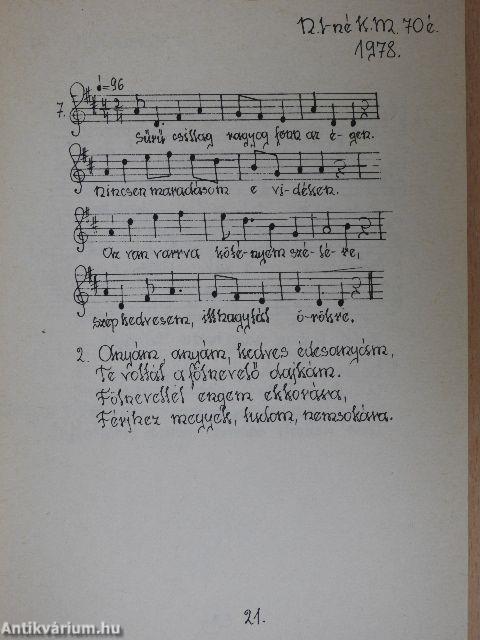 N.I-né K.M. 70 é.
1978.
♩=96
7.
Sűrű csillag ragyog fönn az é-gen.
Nincsen maradásom e vi-déken.
Az van varrva köté-nyëm szé-lé-re,
Szép kedvesem, itthagytál ö-rökre.
2. Anyám, anyám, kedves édesanyám,
Te vóltál a fölnevelő dajkám.
Fölneveltél engem ekkorára,
Férjhez megyëk, tudom, nemsokára.
21.
Antikvárium.hu